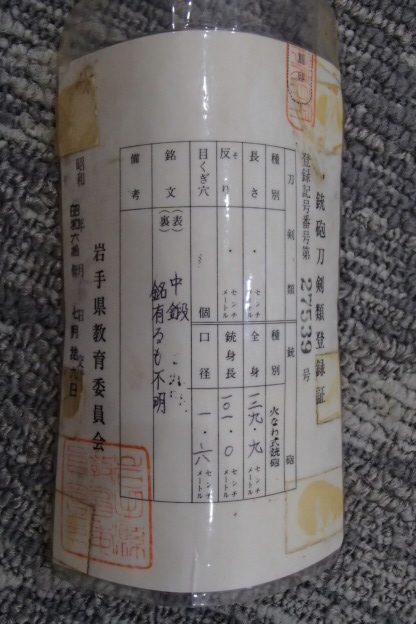 銃砲刀剣類登録証
登録記号番号第 27539 号
刀剣類 銃砲
種別 種別 火なわ式銃砲
長さ ・ センチメートル 全長 一二九・九 センチメートル
反り ・ センチメートル 銃身長 一〇一・〇 センチメートル
目くぎ穴 個 口径 一・六 センチメートル
銘文 (表) 中鍛
(裏) 銘有るも不明
備考
昭和
日
岩手県教育委員会